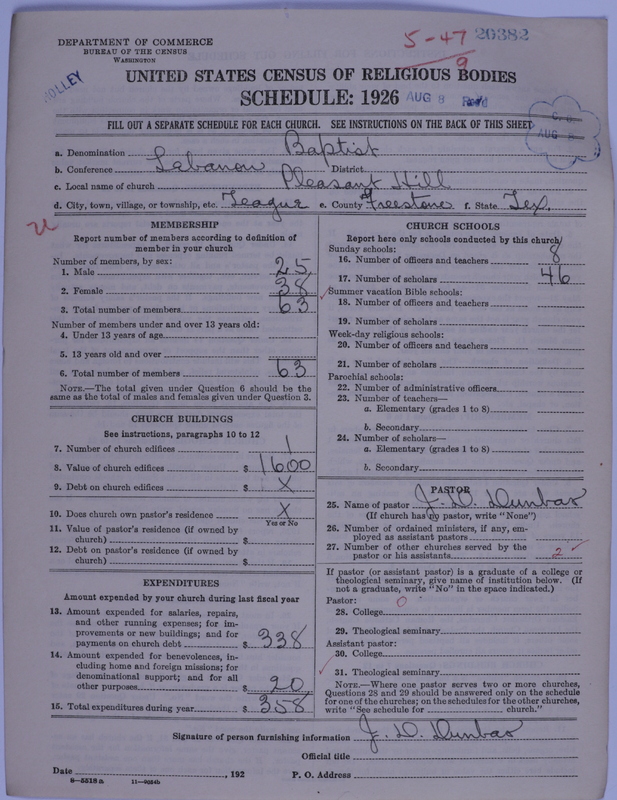 DEPARTMENT OF COMMERCE
BUREAU OF THE CENSUS
WASHINGTON
5-47 20382
9
UNITED STATES CENSUS OF RELIGIOUS BODIES
SCHEDULE: 1926 AUG 8 Rec'd
FILL OUT A SEPARATE SCHEDULE FOR EACH CHURCH. SEE INSTRUCTIONS ON THE BACK OF THIS SHEET
AUG 8
a. Denomination Baptist
b. Conference Lebanon District
c. Local name of church Pleasant Hill
d. City, town, village, or township, etc. Teague e. County Freestone f. State Tex.
MEMBERSHIP
Report number of members according to definition of
member in your church
Number of members, by sex:
1. Male 25
2. Female 38
3. Total number of members 63
Number of members under and over 13 years old:
4. Under 13 years of age
5. 13 years old and over
6. Total number of members 63
NOTE.—The total given under Question 6 should be the
same as the total of males and females given under Question 3.
CHURCH BUILDINGS
See instructions, paragraphs 10 to 12
7. Number of church edifices 1
8. Value of church edifices $ 1600
9. Debt on church edifices $ X
10. Does church own pastor's residence X
Yes or No
11. Value of pastor's residence (if owned by
church) $
12. Debt on pastor's residence (if owned by
church) $
EXPENDITURES
Amount expended by your church during last fiscal year
13. Amount expended for salaries, repairs,
and other running expenses; for im-
provements or new buildings; and for
payments on church debt $ 338
14. Amount expended for benevolences, in-
cluding home and foreign missions; for
denominational support; and for all
other purposes $ 20
15. Total expenditures during year $ 358
CHURCH SCHOOLS
Report here only schools conducted by this church
Sunday schools:
16. Number of officers and teachers 8
17. Number of scholars 46
Summer vacation Bible schools:
18. Number of officers and teachers
19. Number of scholars
Week-day religious schools:
20. Number of officers and teachers
21. Number of scholars
Parochial schools:
22. Number of administrative officers
23. Number of teachers—
a. Elementary (grades 1 to 8)
b. Secondary
24. Number of scholars—
a. Elementary (grades 1 to 8)
b. Secondary
PASTOR
25. Name of pastor J. D. Dunbar
(If church has no pastor, write "None")
26. Number of ordained ministers, if any, em-
ployed as assistant pastors
27. Number of other churches served by the
pastor or his assistants 2
If pastor (or assistant pastor) is a graduate of a college or
theological seminary, give name of institution below. (If
not a graduate, write "No" in the space indicated.)
Pastor: 0
28. College
29. Theological seminary
Assistant pastor:
30. College
31. Theological seminary
NOTE.—Where one pastor serves two or more churches,
Questions 28 and 29 should be answered only on the schedule
for one of the churches; on the schedules for the other churches,
write "See schedule for church."
Signature of person furnishing information J. D. Dunbar
Official title
Date , 192 P. O. Address